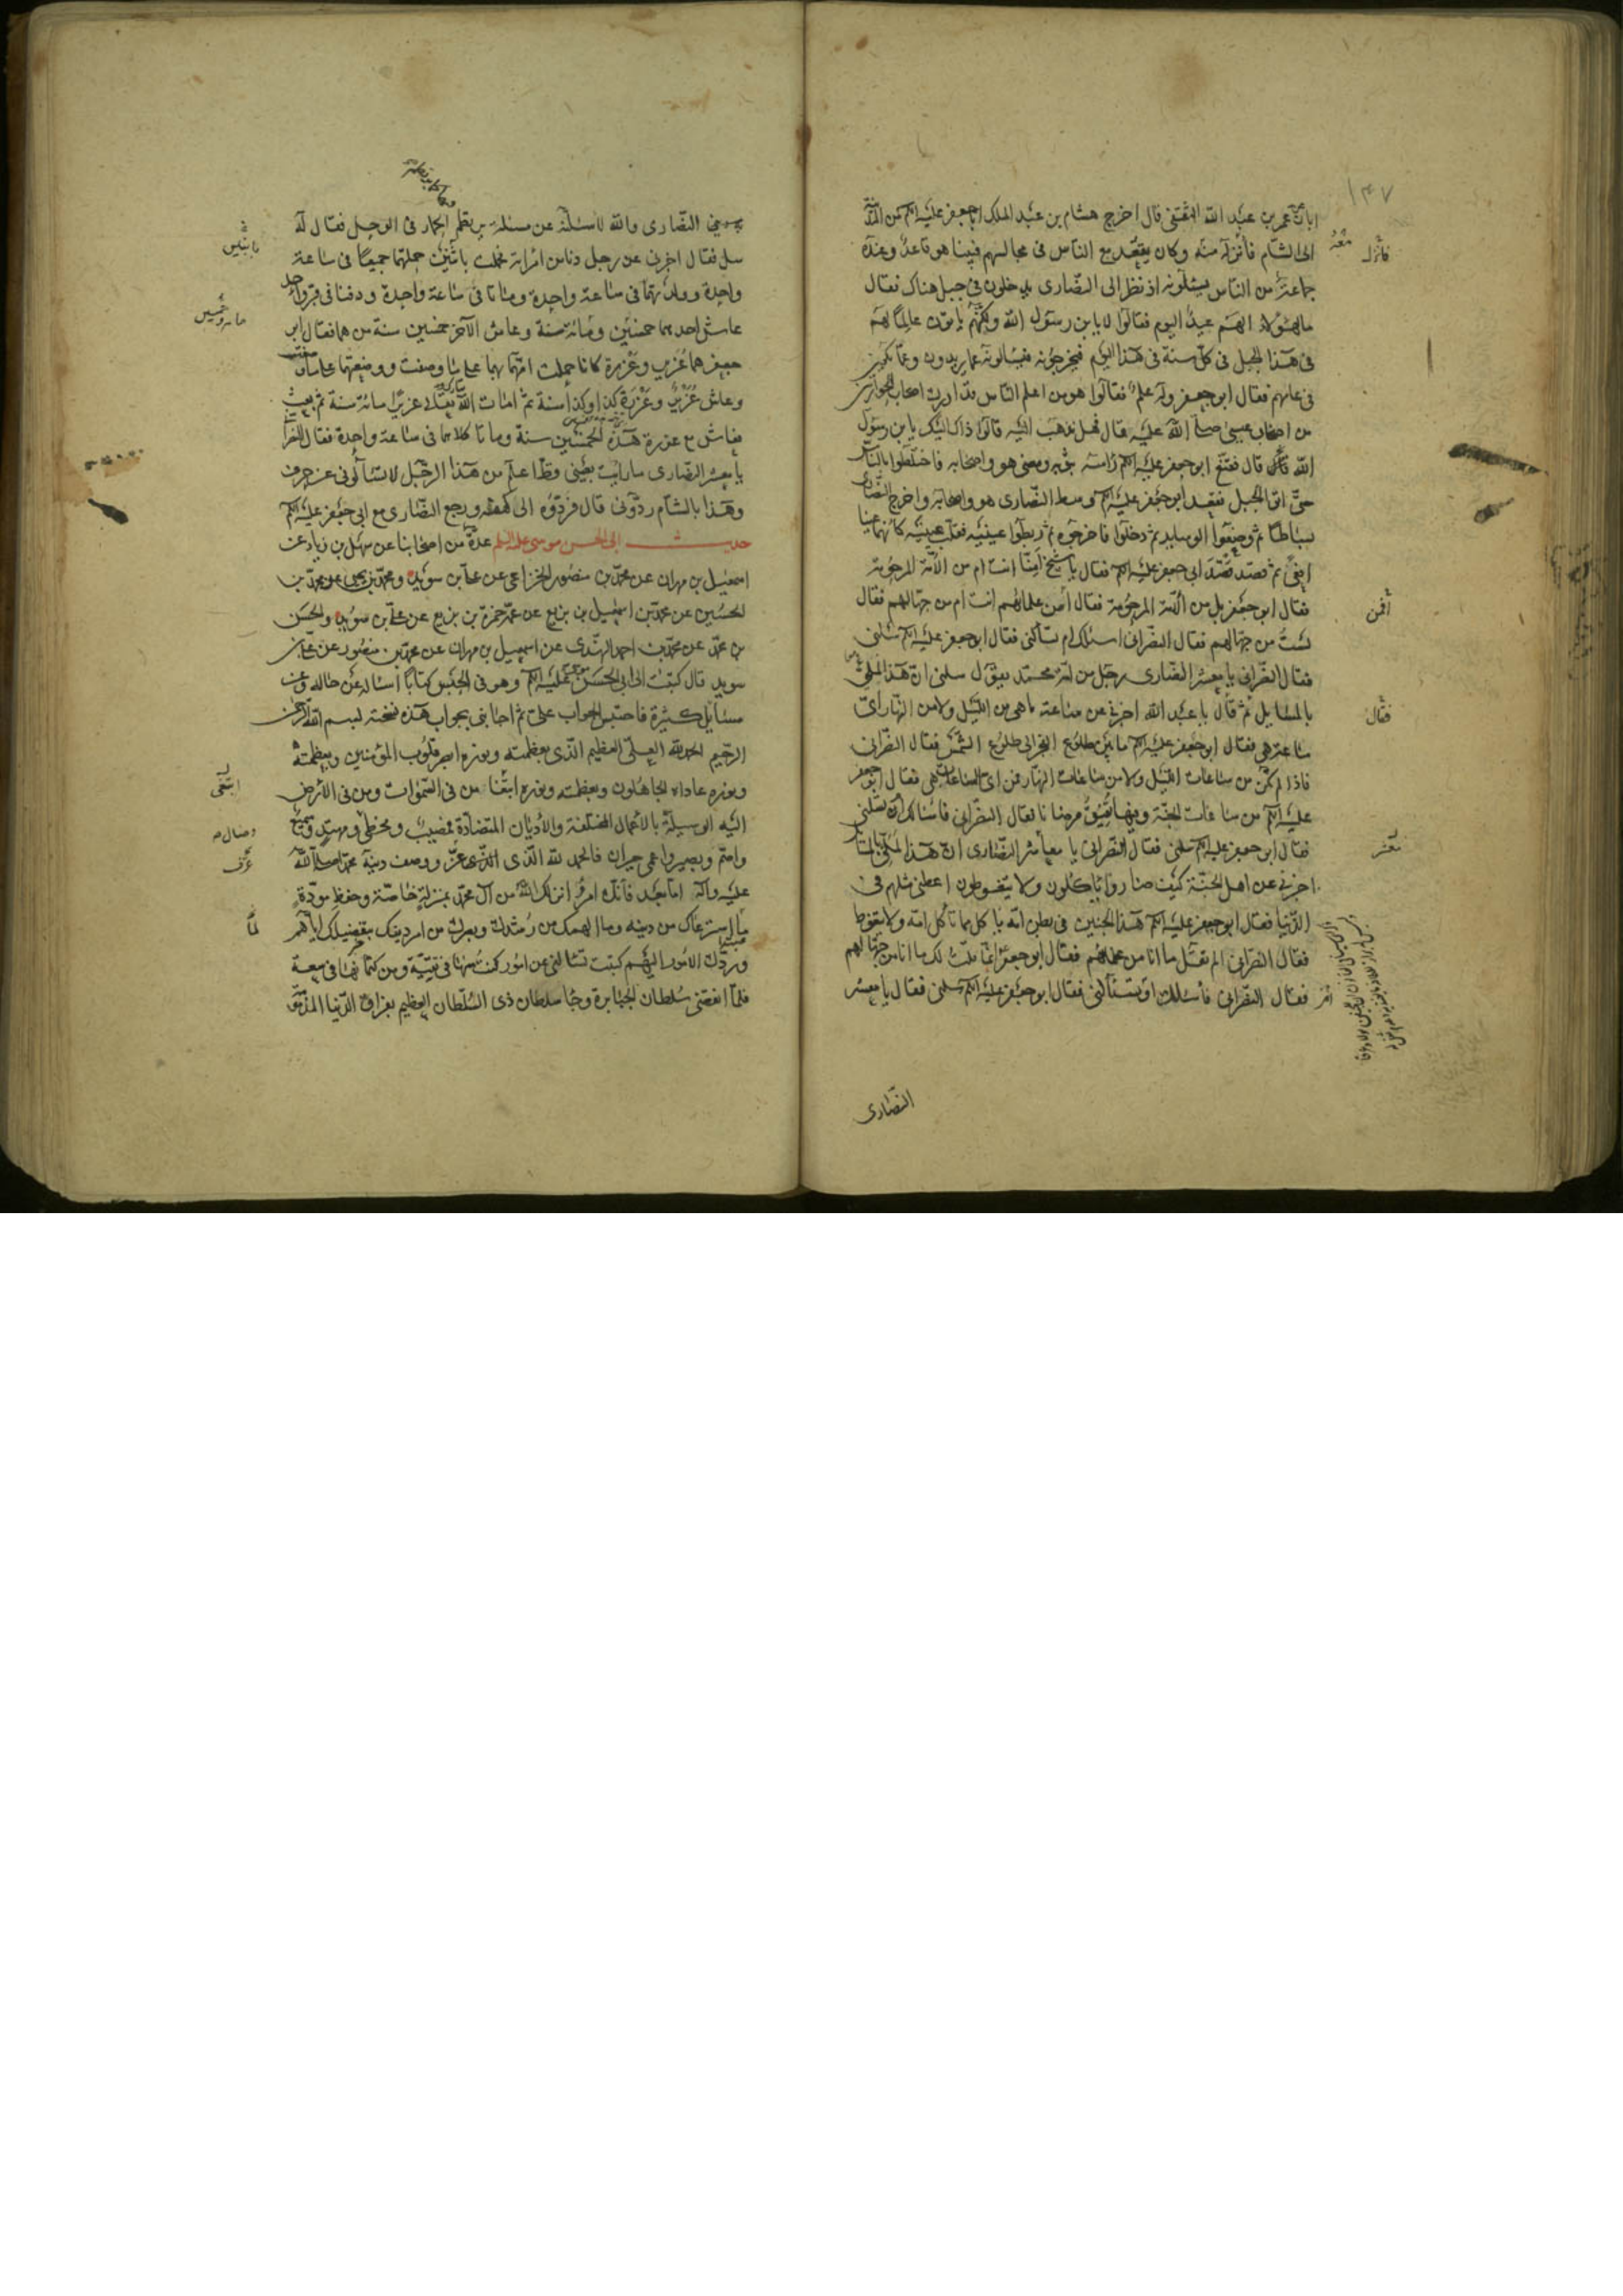 ١٤٧
ابان عن عمر بن عبد الله الثقفي قال اخرج هشام بن عبد الملك ابا جعفر عليه السلم من المدينة
الى الشام فانزله منه وكان يقعد مع الناس في مجالسهم فبينا هو قاعد وعنده
جماعة من الناس يسئلونه اذ نظر الى النصارى يدخلون في جبل هناك فقال
ما لهؤلاء الهم عيد اليوم فقالوا لا يا بن رسول الله ولكنهم ياتون عالما لهم
في هذا الجبل في كل سنة في هذا اليوم فيخرجونه فيسالونه عما يريدون وعما يكون
في عامهم فقال ابو جعفر وله علم فقالوا هو من اعلم الناس قد ادرك اصحاب الحواريين
من اصحاب عيسى صلى الله عليه قال فهل نذهب اليه قالوا ذاك اليك يا بن رسول
الله قال فقنع ابو جعفر عليه السلم راسه بثوبه ومضى هو واصحابه فاختلطوا بالناس
حتى اتوا الجبل فقعد ابو جعفر عليه السلم وسط النصارى هو واصحابه واخرج النصارى
بساطا ثم وضعوا الوسايد ثم دخلوا فاخرجوه ثم ربطوا عينيه فقلب عينيه كانهما عينا
افعى ثم قصد قصد ابي جعفر عليه السلم فقال يا شيخ امنا انت ام من الامة المرحومة
فقال ابو جعفر بل من الامة المرحومة فقال افمن علمائهم انت ام من جهالهم فقال
لست من جهالهم فقال النصراني اسئلك ام تسألني فقال ابو جعفر عليه السلم سلني
فقال النصراني يا معشر النصارى رجل من امة محمد يقول سلني ان هذا لملئ
بالمسايل ثم قال يا عبد الله اخبرني عن ساعة ما هي من الليل ولا من النهار اي
ساعة هي فقال ابو جعفر عليه السلم ما بين طلوع الفجر الى طلوع الشمس فقال النصراني
فاذا لم تكن من ساعات الليل ولا من ساعات النهار فمن اي الساعات هي فقال ابو جعفر
عليه السلم من ساعات الجنة وفيها تفيق مرضانا فقال النصراني فاسألك ام تسئلني
فقال ابو جعفر عليه السلم سلني فقال النصراني يا معاشر النصارى ان هذا لملئ بالمسائل
اخبرني عن اهل الجنة كيف صاروا ياكلون ولا يتغوطون اعطني مثلهم في
الدنيا فقال ابو جعفر عليه السلم هذا الجنين في بطن امه ياكل مما تأكل امه ولا يتغوط
فقال النصراني الم تقل ما انا من علمائهم فقال ابو جعفر انما قلت لك ما انا من جهالهم
فقال النصراني فأسئلك او تسئألني فقال ابو جعفر عليه السلم سلني فقال يا معشر
النصارى
فانزله
معه
افمن
فقال
معشر
يعني النصارى والله لاسئلنه عن مسئلة يرتطم الحمار في الوحل فقال له
سل فقال اخبرني عن رجل دنا من امراته فحملت باثنين حملتهما جميعا في ساعة
واحدة وولدتهما في ساعة واحدة وماتا في ساعة واحدة ودفنا في قبر واحد
عاش احدهما خمسين ومائة سنة وعاش الآخر خمسين سنة من هما فقال ابو
جعفر هما عزير وعزرة كانا حملت امهما بهما على ما وصفت ووضعتهما على ما وصفت
وعاش عزير وعزرة كذا وكذا سنة ثم امات الله تعالى عزيرا مائة سنة ثم بعث
فعاش مع عزرة هذه الخمسين سنة وماتا كلاهما في ساعة واحدة فقال النصراني
يا معشر النصارى ما رايت بعيني قط اعلم من هذا الرجل لا تسألوني عن حرف
وهذا بالشام ردوني قال فردوه الى كهفه ورجع النصارى مع ابي جعفر عليه السلم
حديث ابي الحسن موسى عليه السلم عدة من اصحابنا عن سهل بن زياد عن
اسمعيل بن مهران عن محمد بن منصور الخزاعي عن علي بن سويد ومحمد بن يحيى عن محمد بن
الحسين عن محمد بن اسمعيل بن بزيع عن عمه حمزة بن بزيع عن علي بن سويد والحسن
بن محمد عن محمد بن احمد النهدي عن اسمعيل بن مهران عن محمد بن منصور عن علي بن
سويد قال كتبت الى ابي الحسن موسى عليه السلم وهو في الحبس كتابا اسئاله عن حاله وعن
مسايل كثيرة فاحتبس الجواب علي ثم اجابني بجواب هذه نسخته بسم الله الرحمن
الرحيم الحمد لله العلي العظيم الذي بعظمته ونوره ابصر قلوب المؤمنين وبعظمته
ونوره عاداه الجاهلون وبعظمته ونوره ابتغا من في السموات ومن في الارض
اليه الوسيلة بالاعمال المختلفة والأديان المتضادة فمصيب ومخطئ ومهتد وسميع
واصم وبصير واعمى حيران فالحمد لله الذي عز ووصف دينه محمد صلى الله
عليه وآله اما بعد فانك امرؤ انزلك الله من آل محمد بمنزلة خاصة وحفظ مودة
ما استرعاك من دينه وما الهمك من رشدك وبصرك من امر دينك بتفضيلك اياهم
وبردك الامور اليهم كتبت تسالني عن امور كنت منها في تقية ومن كتمانها في سعة
فلما انقضى سلطان الجبابرة وجا سلطان ذي السلطان العظيم بفراق الدنيا المذمومة
باثنين
مائة وخمسين
ابتغى
وضال
عرف
لما